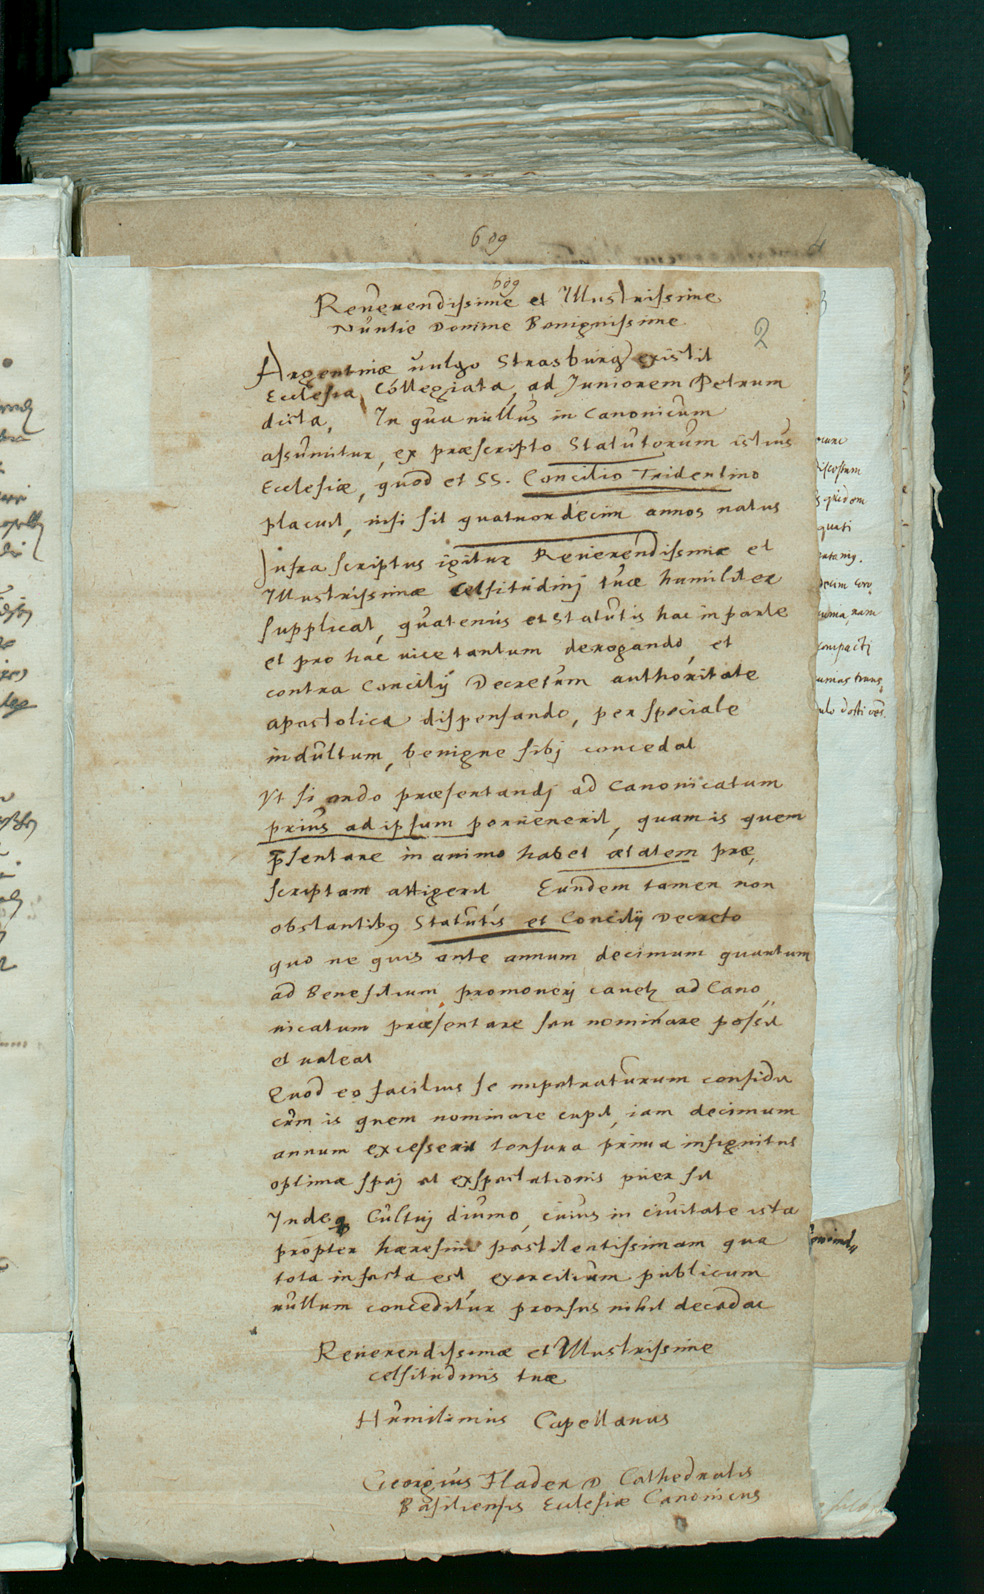 609
609
Reverendissime et Illustrissime
Nuntie Domine Benignissime
2
Argentinæ vulgo Strasburg existit
Ecclesia Collegiata, ad Juniorem Petrum
dicta, In qua nullus in Canonicum
assumitur, ex præscripto Statutorum istius
Ecclesiæ, quod et SS. Concilio Tridentino
placuit, nisi sit quatuordecim annos natus
Infra scriptus igitur Reverendissimæ et
Illustrissimæ Celsitudinj tuæ humiliter
supplicat, quatenus et statutis hac in parte
et pro hac vice tantum derogando, et
contra Concilij Decretum authoritate
apostolica dispensando, per speciale
indultum, benigne sibj concedat
Vt si ordo præsentandj ad Canonicatum
prius ad ipsum pervenerit, quam is quem
p̄sentare in animo habet ætatem præ
scriptam attigerit Eundem tamen non
obstantibꝯ Statutis et Concilij Decreto
quo ne quis ante annum decimum quartum
ad Benefitium promoverj cavetꝫ ad Cano„
nicatum præsentare seu nominare possit
et valeat
Quod eo facilius se impetraturum confidit
cum is quem nominare cupit, iam decimum
annum excesserit tonsura prima insignitus
optimæ spej et exspectationis puer sit
Indeq Cultuj divino, cuius in civitate ista
propter hæresim pestilentissimam qua
tota infecta est exercitium publicum
nullum conceditur prorsus nihil decedat
Reverendissimæ et Illustrissime
Celsitudinis tuæ
Humilimus Capellanus
Georgius Flader D Cathedralis
Basiliensis Ecclesiæ Canonicus